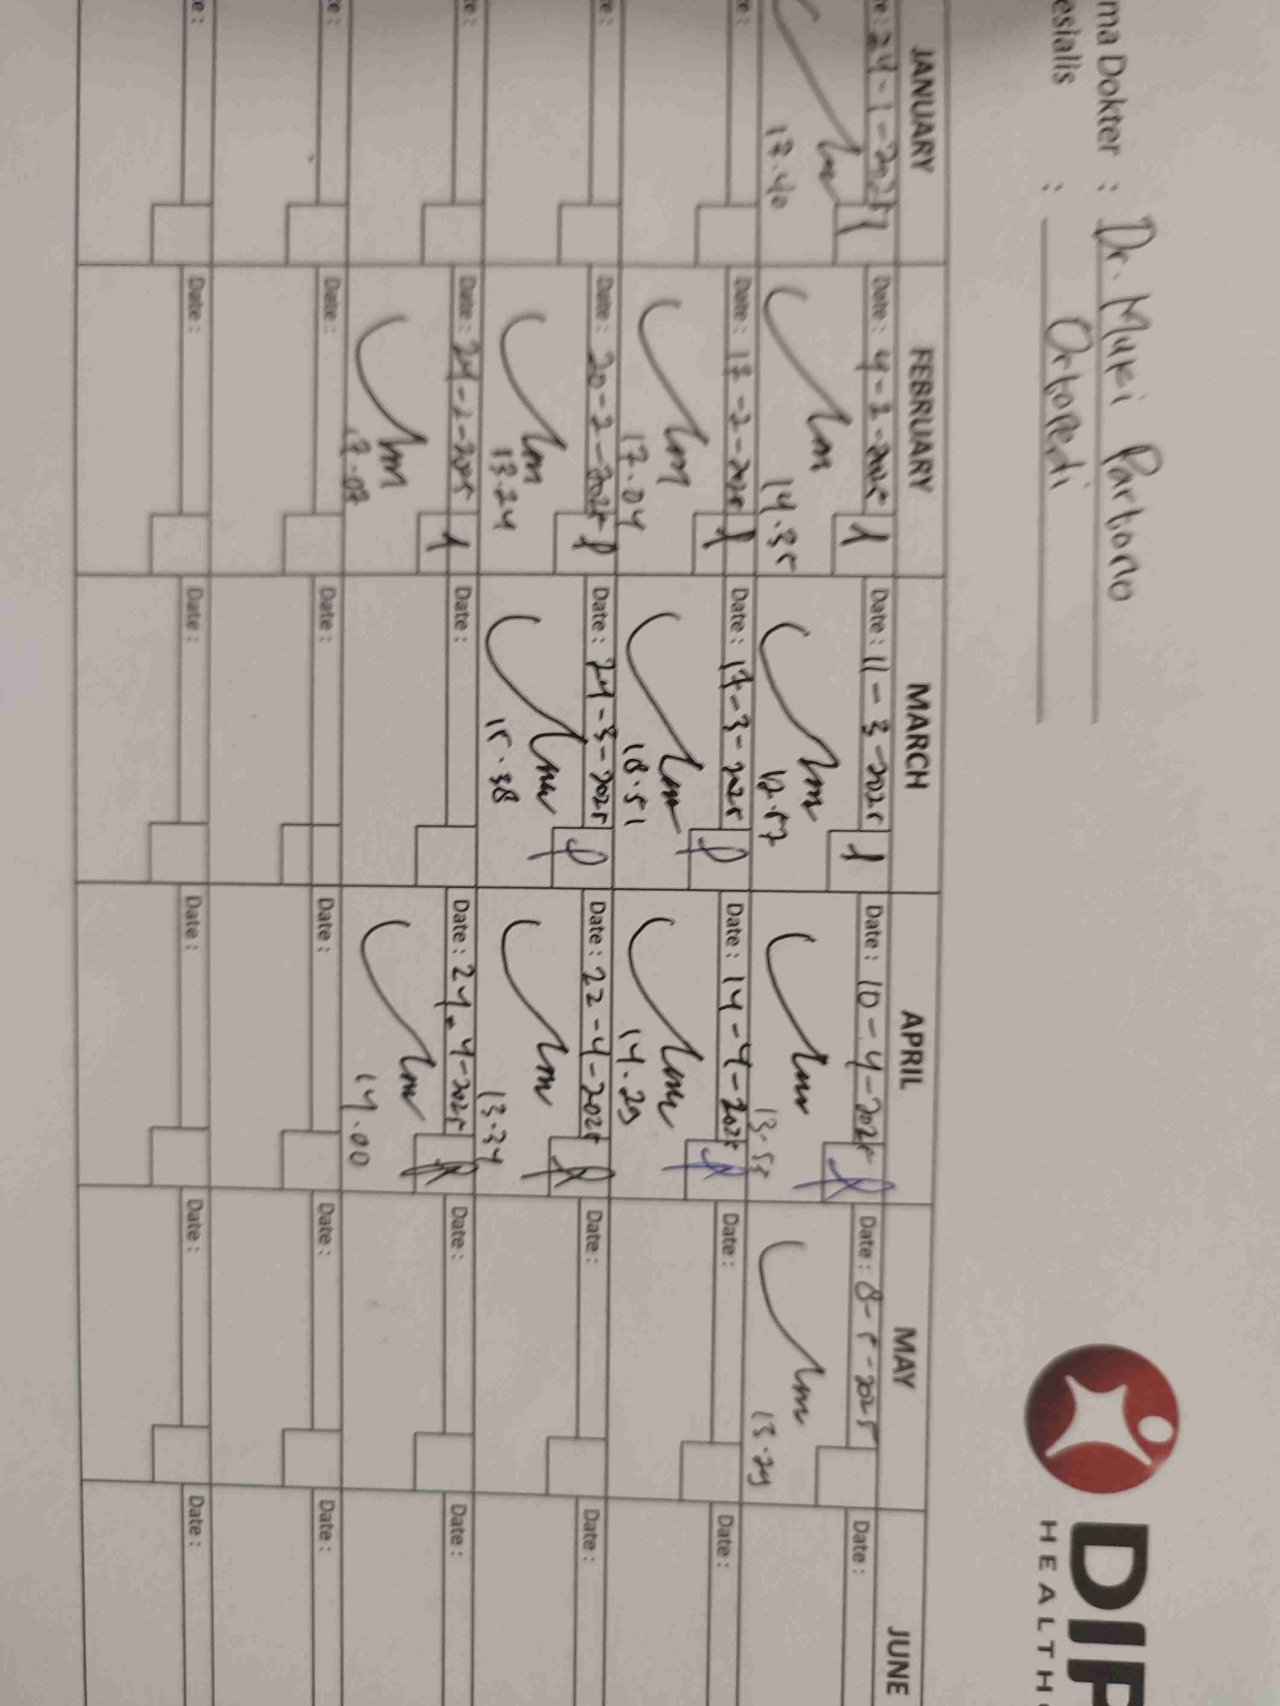 ma Dokter : Dr. Muki Partono
esialis : Ortopedi
DIF
HEALTH
JANUARY FEBRUARY MARCH APRIL MAY JUNE
te: 24-1-2025 1 Date: 4-2-2025 1 Date: 11-3-2025 1 Date: 10-4-2025 Date: 8-5-2025 Date:
17.40 14.35 12.57 13.53 13.29
te: Date: 17-2-2025 1 Date: 17-3-2025 Date: 14-4-2025 Date: Date:
17.04 18.51 14.29
te: Date: 20-2-2025 Date: 24-3-2025 Date: 22-4-2025 Date: Date:
13.24 15.38 13.34
te: Date: 24-2-2025 1 Date: Date: 24-4-2025 Date: Date:
17.07 14.00
te: Date: Date: Date: Date: Date:
te: Date: Date: Date: Date: Date: